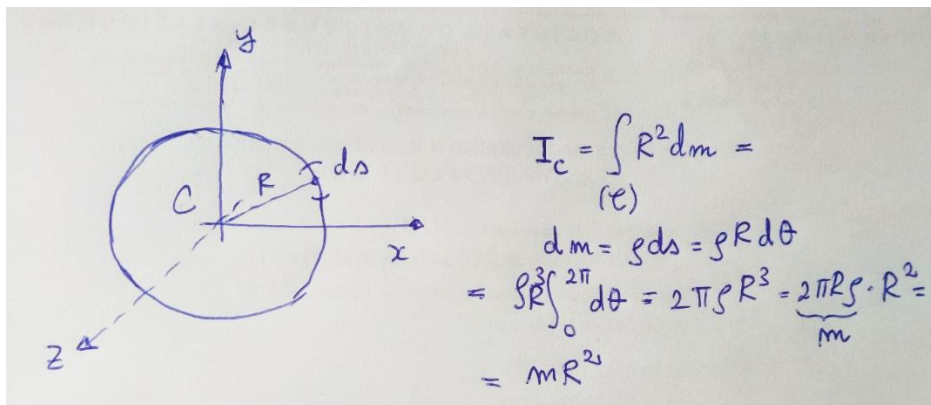 y
ds
R
C
x
z
I_c = ∫_(C) R² dm =
dm = ρ ds = ρ R dθ
= ρR³ ∫₀^2π dθ = 2πρR³ = 2πRρ · R² =
m
= mR²